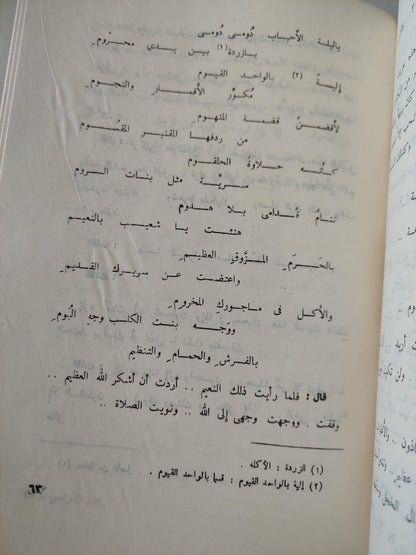 ياليلة الأحباب دُومى دُومى
بـازردة (١) بيـن يـدى محـزوم
إليـةً (٢) بـالواحد القيـوم
مكـور الأقمـار والنجـوم
لأقضمـنّ قضمـة المنهـوم
من ردفهـا المقنبـر المقسـوم
كـأنـه حـلاوة الحلقـوم
سـريّـة مثـل بنـات الـروم
تنـام قـدامـى بـلا هـدوم
هنئـت يـا شعيـب بالنعيـم
بالحَـرَمِ المـزوق العظيـم
واعتضـت عـن سـريـرك القديـم
والأكـل فى مـاجورك المخرومِ
ووجـه بنـت الكلـب وجهِ البُوم
بالفـرشِ والحمـام والتنظيم
قال : فلما رأيت ذلك النعيم .. أردت أن أشكر الله العظيم ..
وقفت . ووجهت وجهى إلى الله .. ونويت الصلاة ..
(١) الزردة : الأكله .
(٢) إلية بالواحد القيوم : قسما بالواحد القيوم .
٦٣